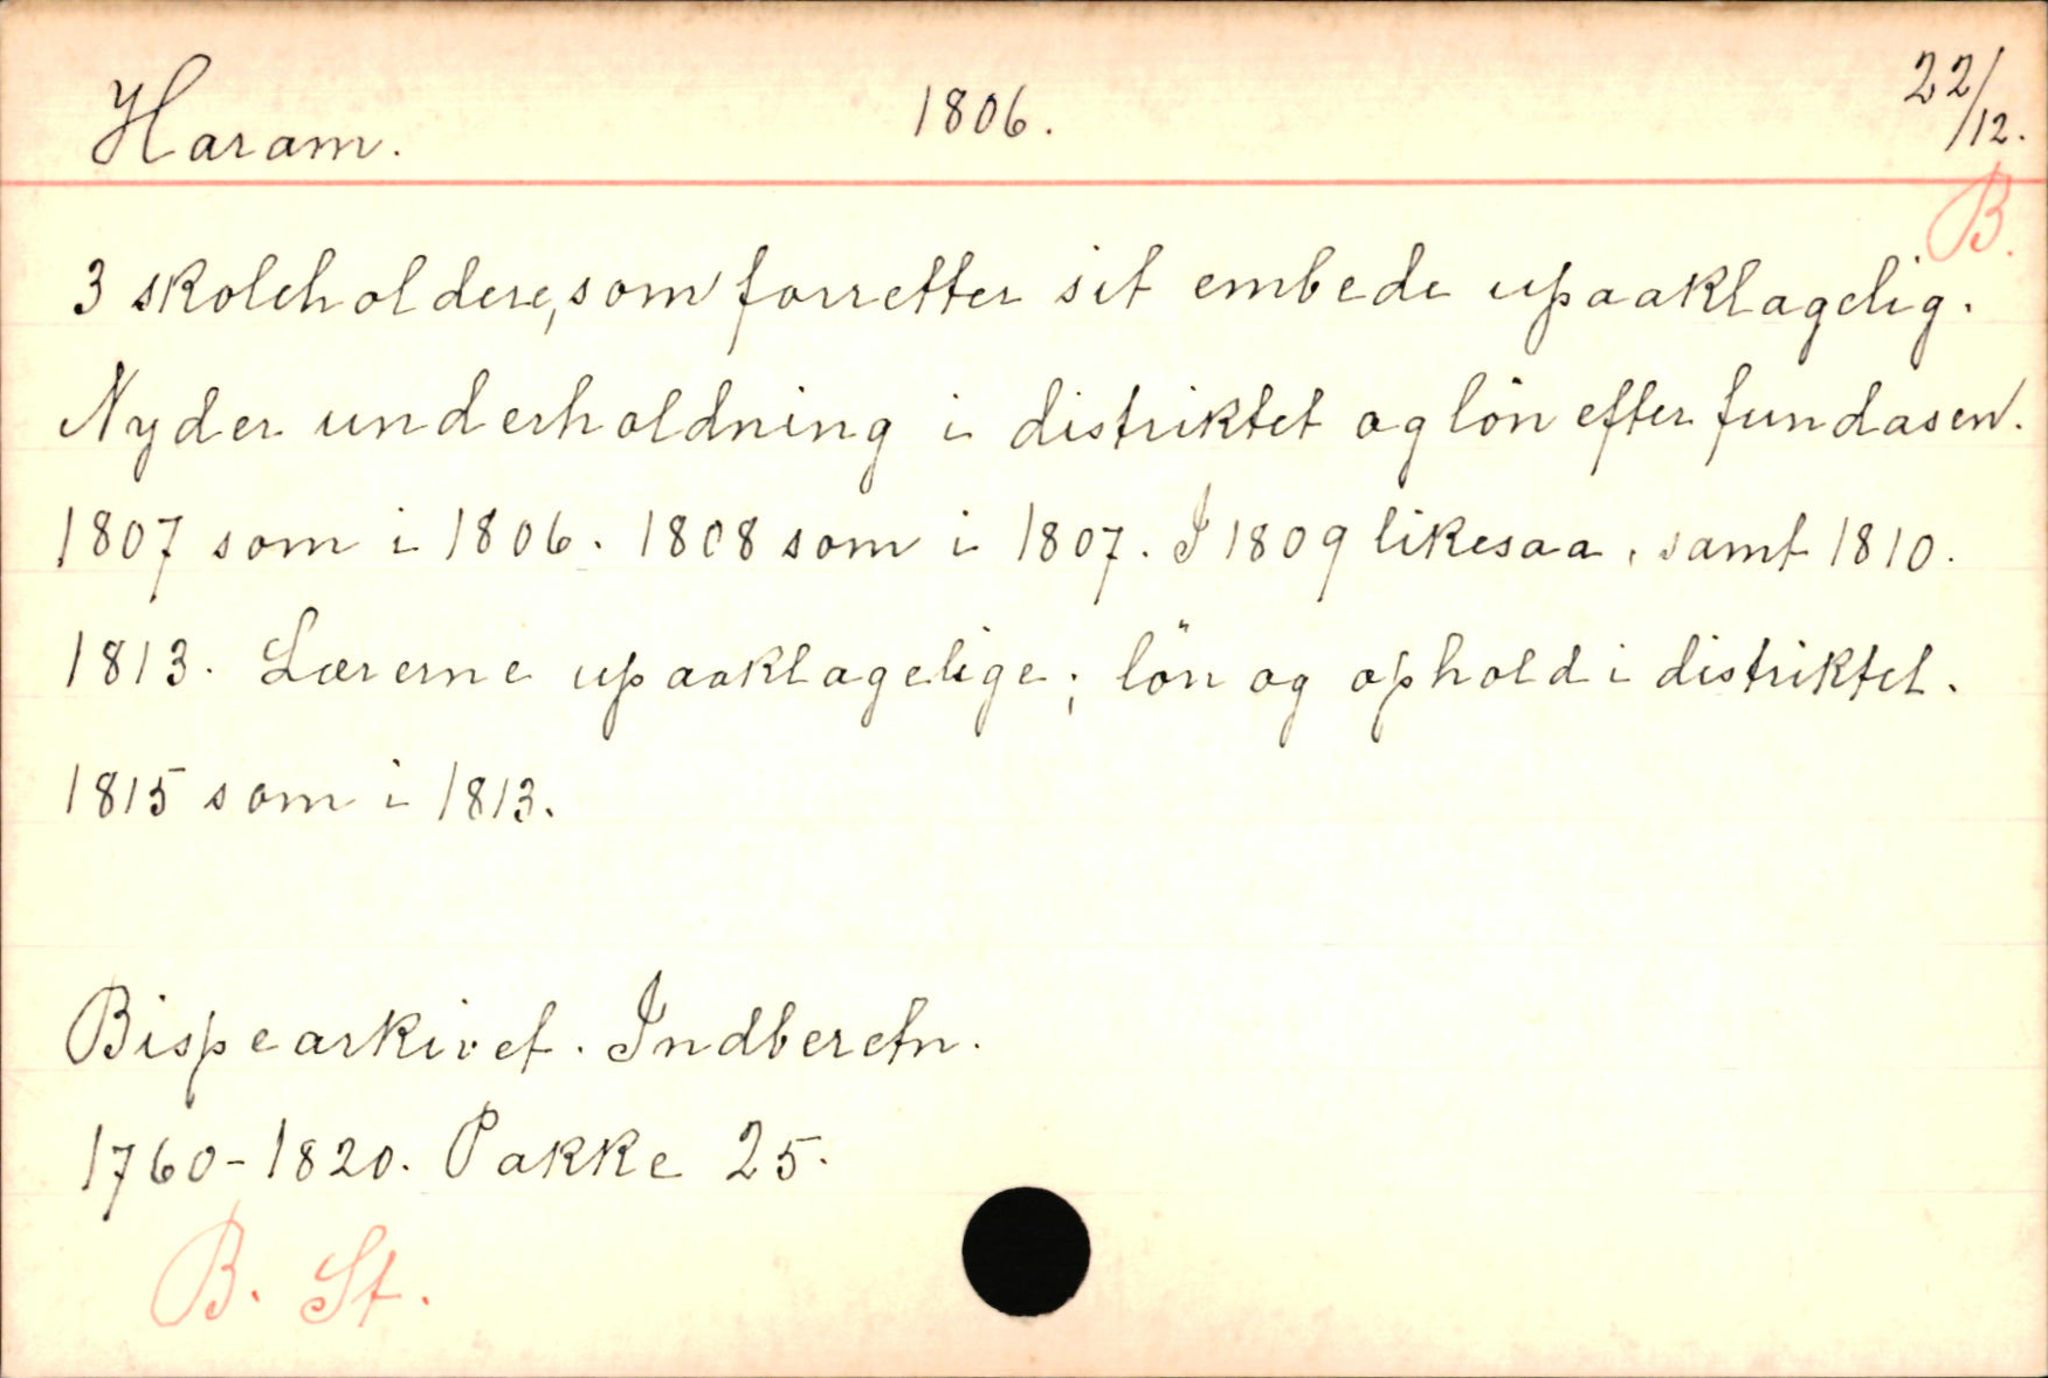 Haram. 1806. 22/12.
B.
3 skoleholdere, som forretter sit embede upaaklagelig.
Nyder underholdning i distriktet og lön efter fundasen.
1807 som i 1806. 1808 som i 1807. I 1809 likesaa, samt 1810.
1813. Lærerne upaaklagelige; lön og ophold i distriktet.
1815 som i 1813.
Bispearkivet. Indberetn.
1760-1820. Pakke 25.
B. St.